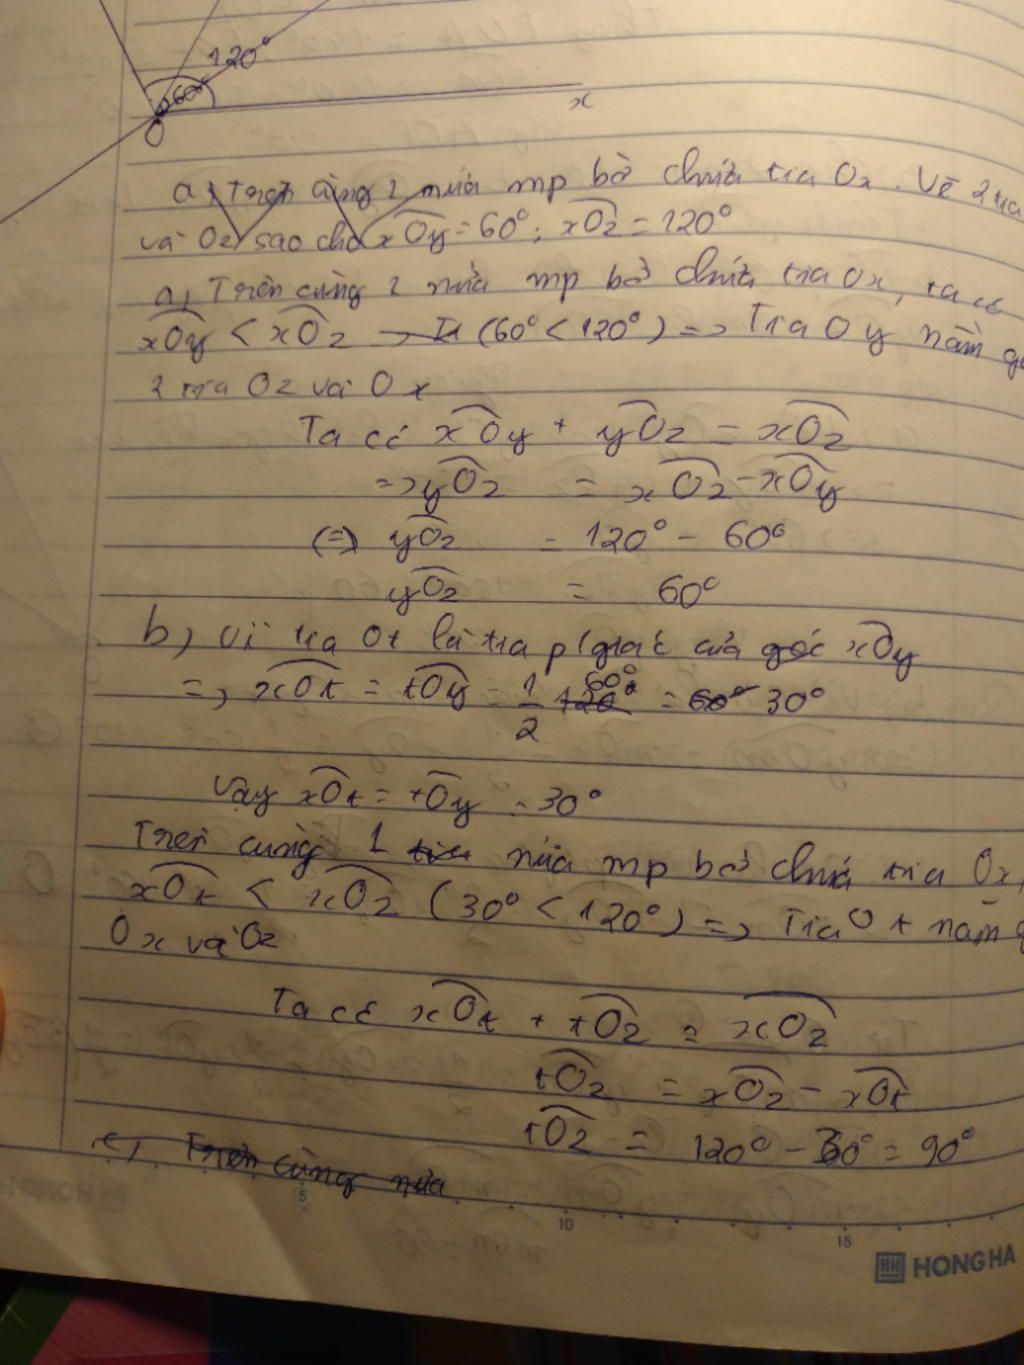 120°
60°
x
O
a, Trên cùng 1 nửa mp bờ chứa tia Ox. Vẽ 2 tia
và Oz sao cho xOy = 60°; xOz = 120°
a, Trên cùng 1 nửa mp bờ chứa tia Ox, ta có
xOy < xOz (60° < 120°) => Tia Oy nằm
2 tia Oz và Ox
Ta có xOy + yOz = xOz
=> yOz = xOz - xOy
(=) yOz = 120° - 60°
yOz = 60°
b, Vì tia Ot là tia p/giác của góc xOy
=> xOt = tOy = 1/2 60° = 30°
Vậy xOt = tOy = 30°
Trên cùng 1 nửa mp bờ chứa tia Ox,
xOt < xOz (30° < 120°) => Tia Ot nằm
Ox và Oz
Ta có xOt + tOz = xOz
tOz = xOz - xOt
tOz = 120° - 30° = 90°
c, Trên cùng nửa
5 10 15
HH HONG HA